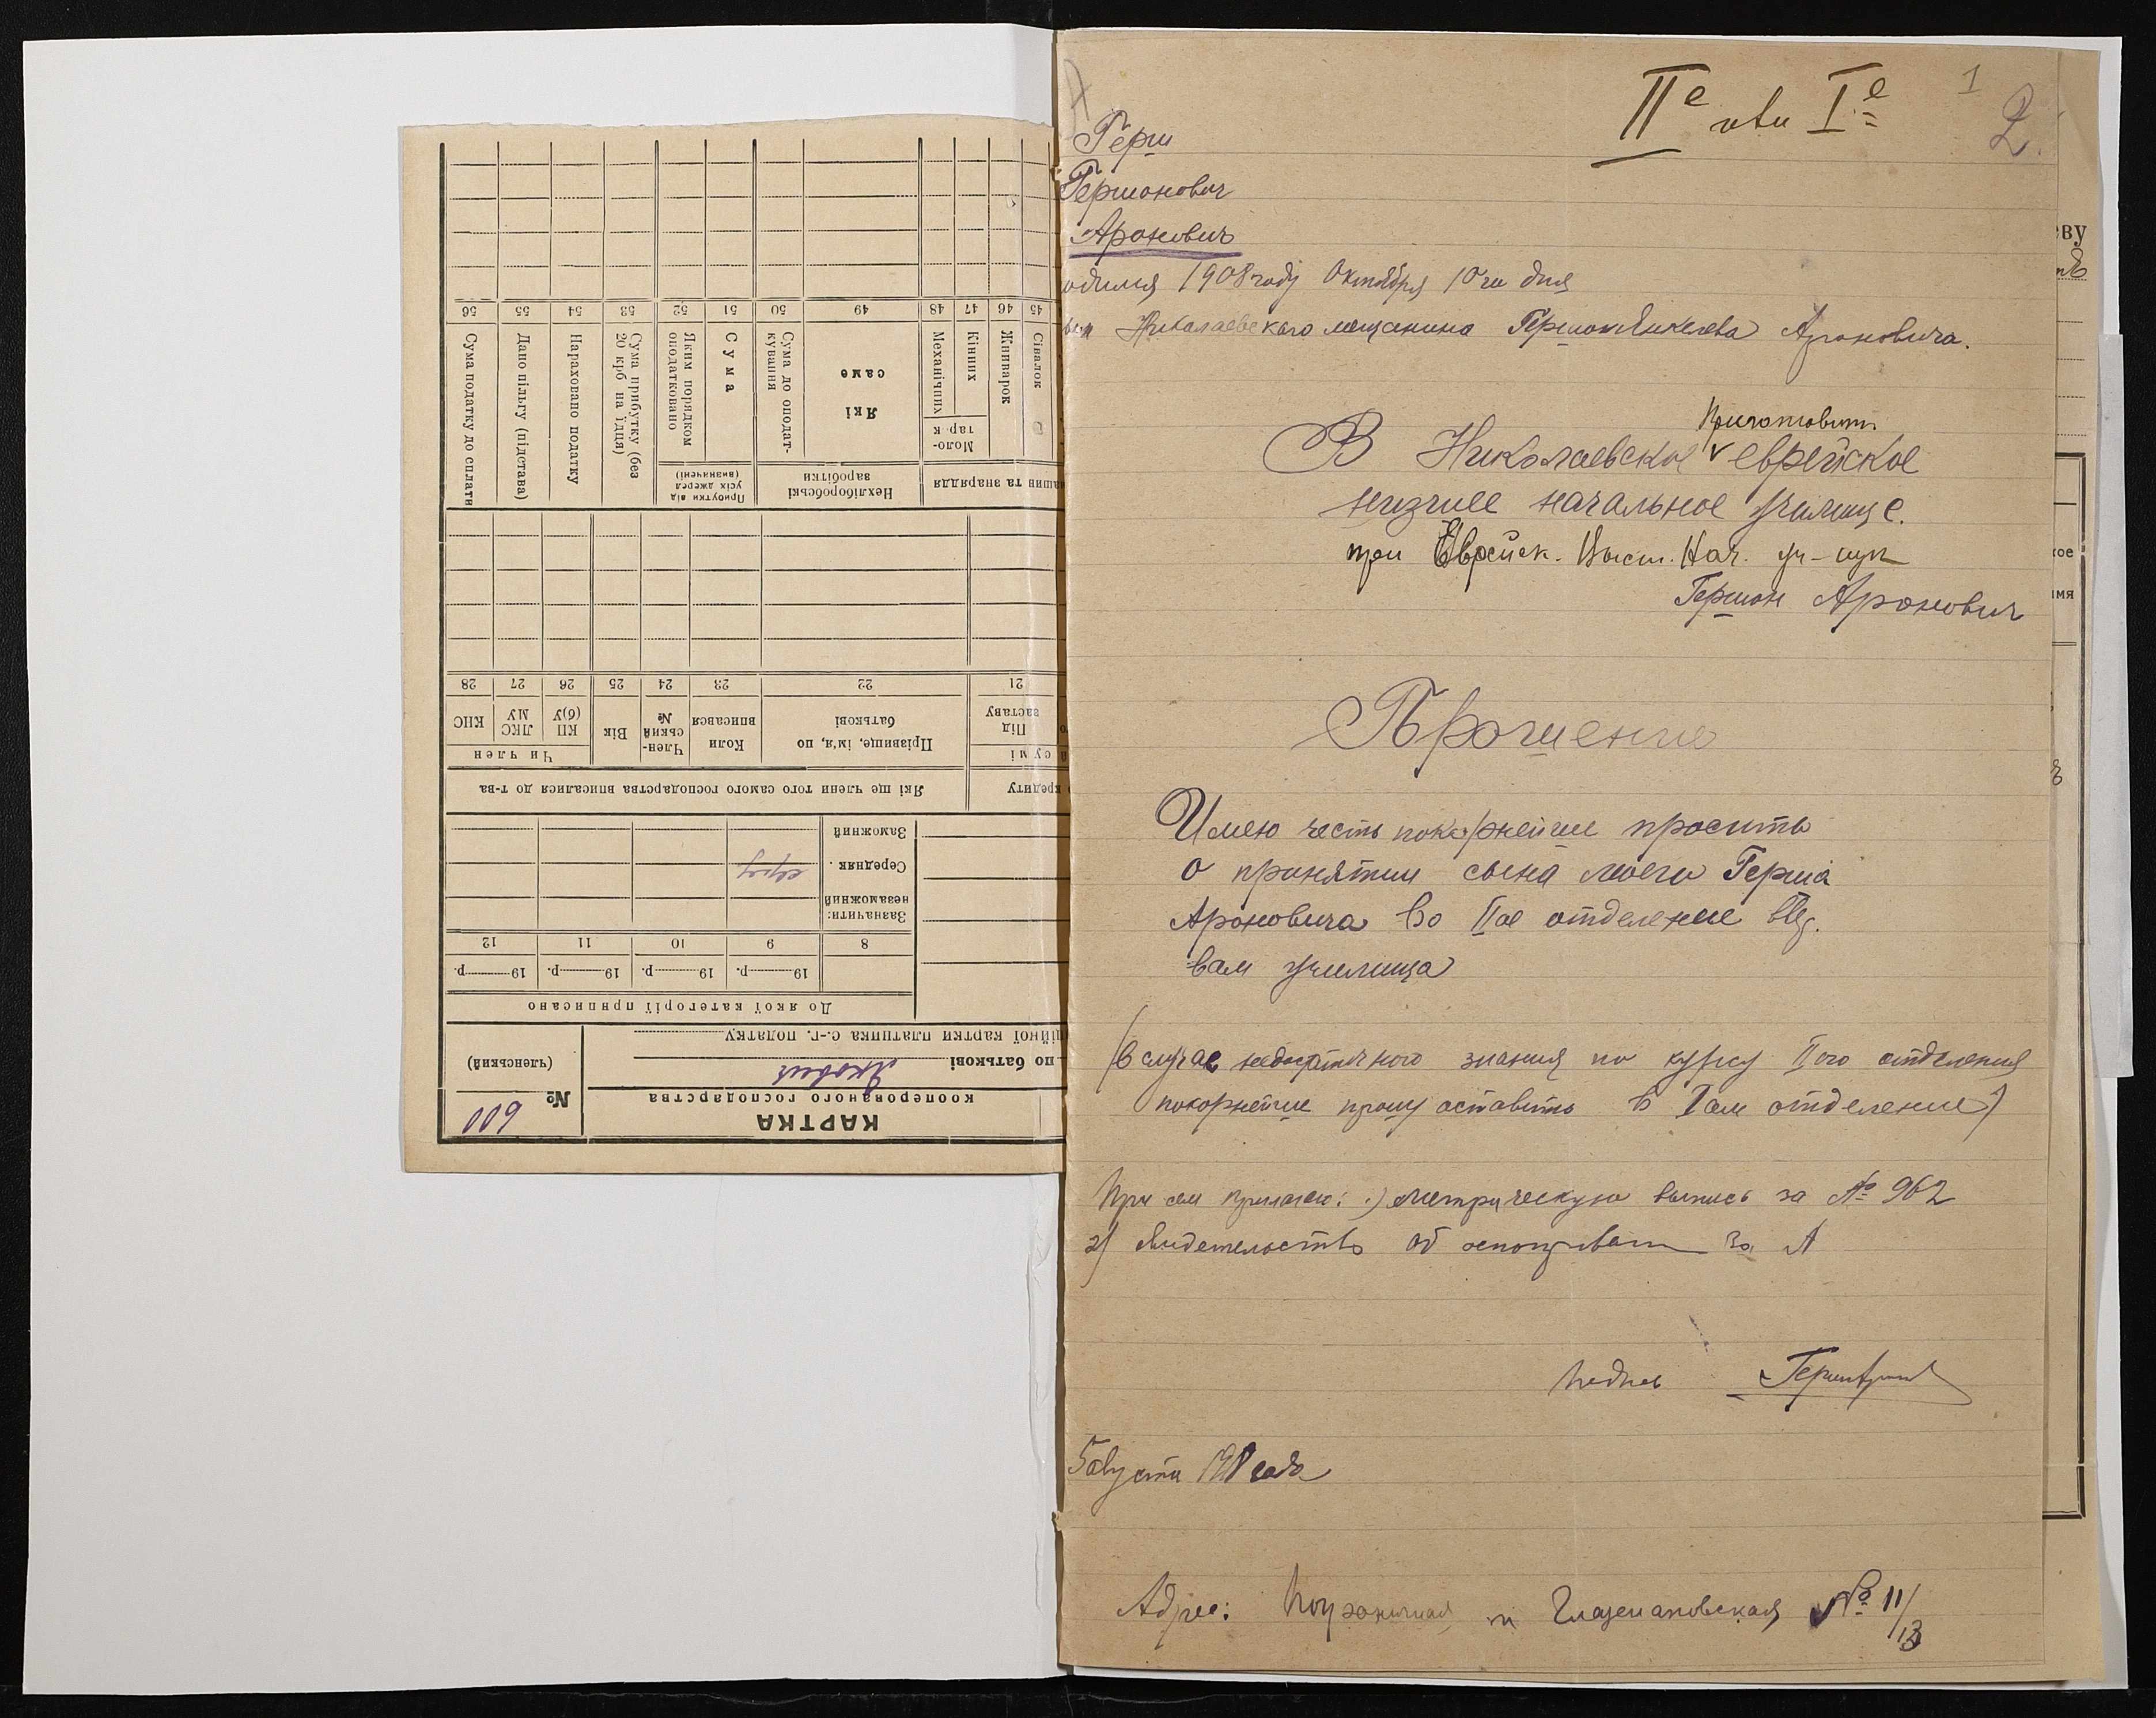 IIе или Iе
1
2.
Герш
Гершонович
Аронович
одился 1908 году Октября 10го дня
сын Николаевского мещанина Гершон Янкелева Ароновича.
Приготовит.
В Николаевское еврейское
низшее начальное училище.
при Еврейск. Высш. Нач. уч-ще
Гершон Аронович
Прошение
Имею честь покорнейше просить
о принятии сына моего Герша
Ароновича во IIое отделение
вам училища
(В случае недостаточного знания по курсу IIого отделения
покорнейше прошу оставить в Iом отделение)
При сем прилагаю: 1) метрическую выпись за № 962
2) Свидетельство об оспопрививании за №
5 августа 1918 года
Адрес: и Глазенаповская № 11/13
КАРТКА
кооперованого господарства
№ 600
(членський)
по батькові Якович
ційної картки платника с.-г. податку
До якої категорії приписано
19 р. 19 р. 19 р. 19 р.
8 9 10 11 12
Зазначити:
незаможний
Середняк
Заможний
кредиту
Які ще члени того самого господарства вписалися до т-ва
а сумі
Під заставу
Прізвище, ім'я, по батькові
Коли вписався
Член-ський №
Вік
Чи член
КП(б)У
ЛКСМУ
КНС
21 22 23 24 25 26 27 28
ашин та знаряддя
Нехліборобські заробітки
Прибутки від усіх джерел (визначені)
Сівалок
Жниварок
Кінних
Механічних
Моло-тарок
Які саме
Сума до оподат-кування
Сума
Яким порядком оподатковано
Сума прибутку (без 20 крб на їдця)
Нараховано податку
Дано пільгу (підстава)
Сума податку до сплати
45 46 47 48 49 50 51 52 53 54 55 56
ву
кое
имя